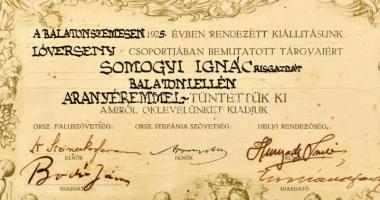 A BALATONSZEMESEN 1925. ÉVBEN RENDEZETT KIÁLLITÁSUNK
LÓVERSENY CSOPORTJÁBAN BEMUTATOTT TÁRGYAIÉRT
SOMOGYI IGNÁC KISGAZDÁT
BALATONLELLÉN
ARANYÉREMMEL TÜNTETTÜK KI
AMIRŐL OKLEVELÜNKET KIADJUK
ORSZ. FALUSZÖVETSÉG: ORSZ. STEFÁNIA SZÖVETSÉG: HELYI RENDEZŐSÉG:
ELNÖK ELNÖK ELNÖK
IGAZGATÓ IGAZGATÓ